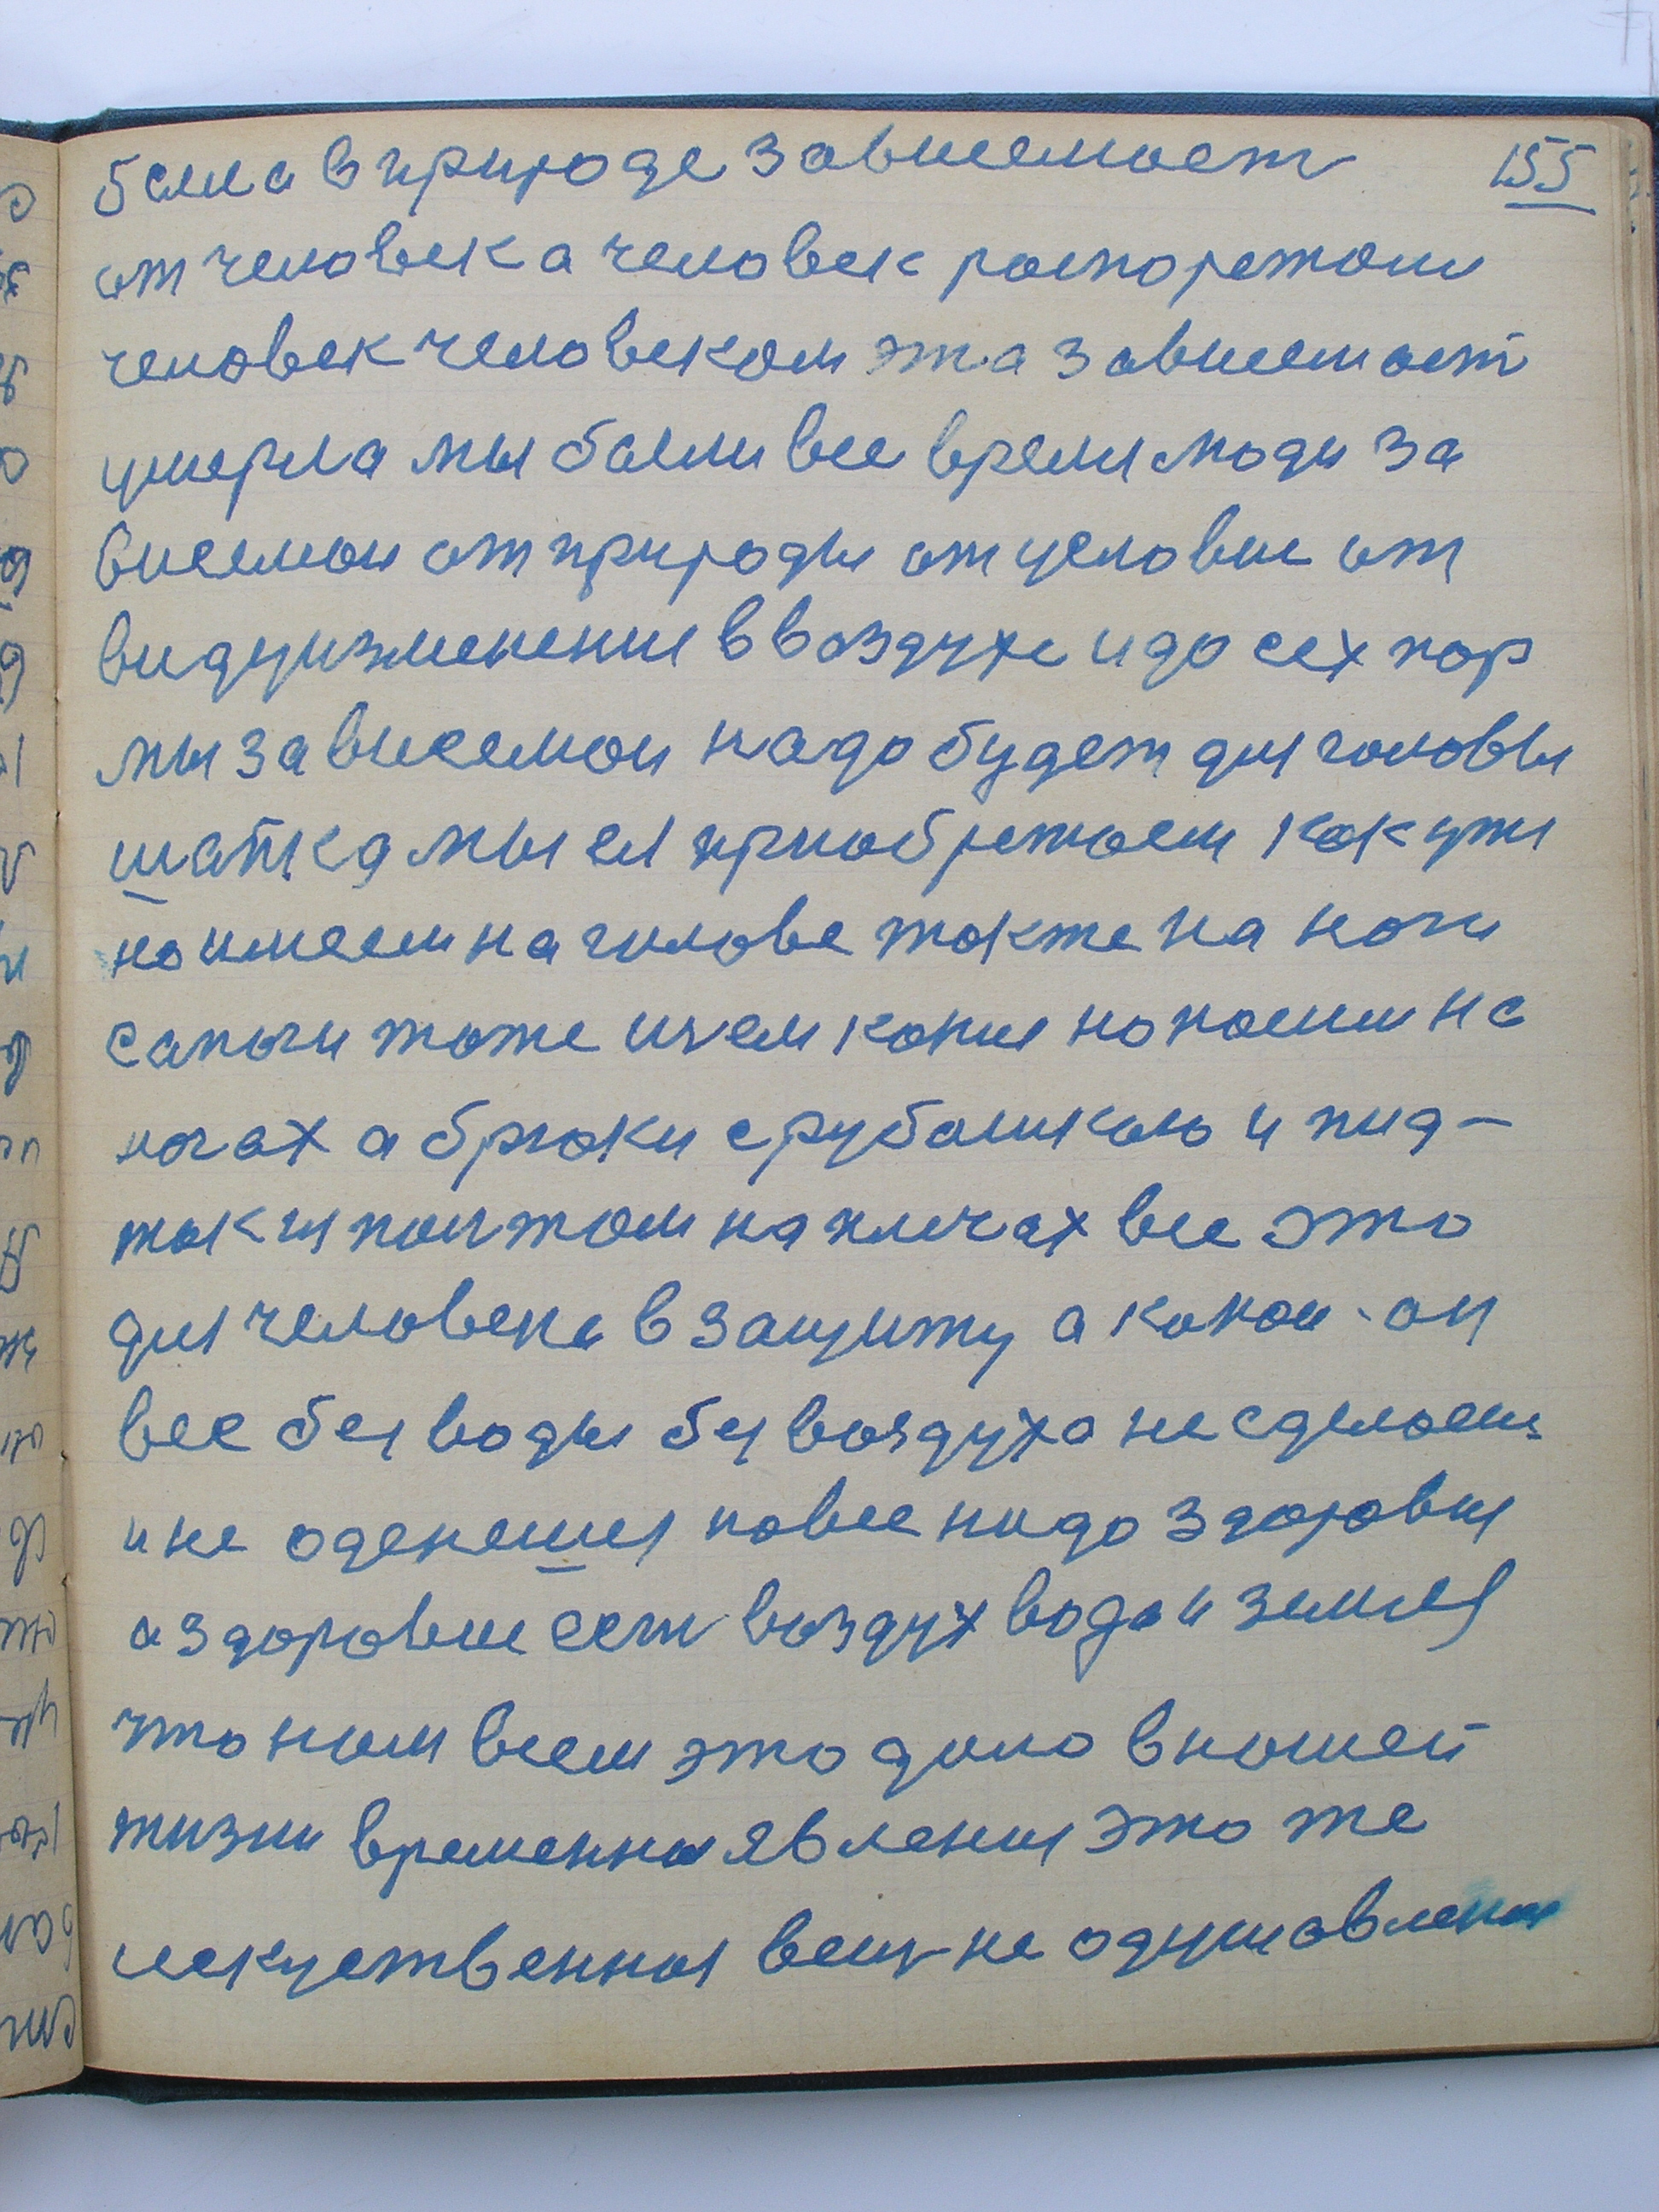 была в природе зависемост 155
от человек а человек роспорежоли
человек человеком эта зависемост
умерла мы были все время люди за
висемои от природы от условие от
видуизменения в воздухе и до сех пор
мы зависемои надо будет для головы
шапка мы ея приобрежоем как уже
но имеем на голове токже на ноги
сапоги тоже ичем копия но носим на
ногах а брюки с рубошкою и пид-
жок и полтом на плечах все это
для человека в защиту а какои он
все без воды без воздуха не сделоеш
и не оденешся новее надо здоровия
а здоровие есть воздух вода и земля
что нам всем это дало в нашей
жизни временная явления это же
искуственная вещ не одушавленая